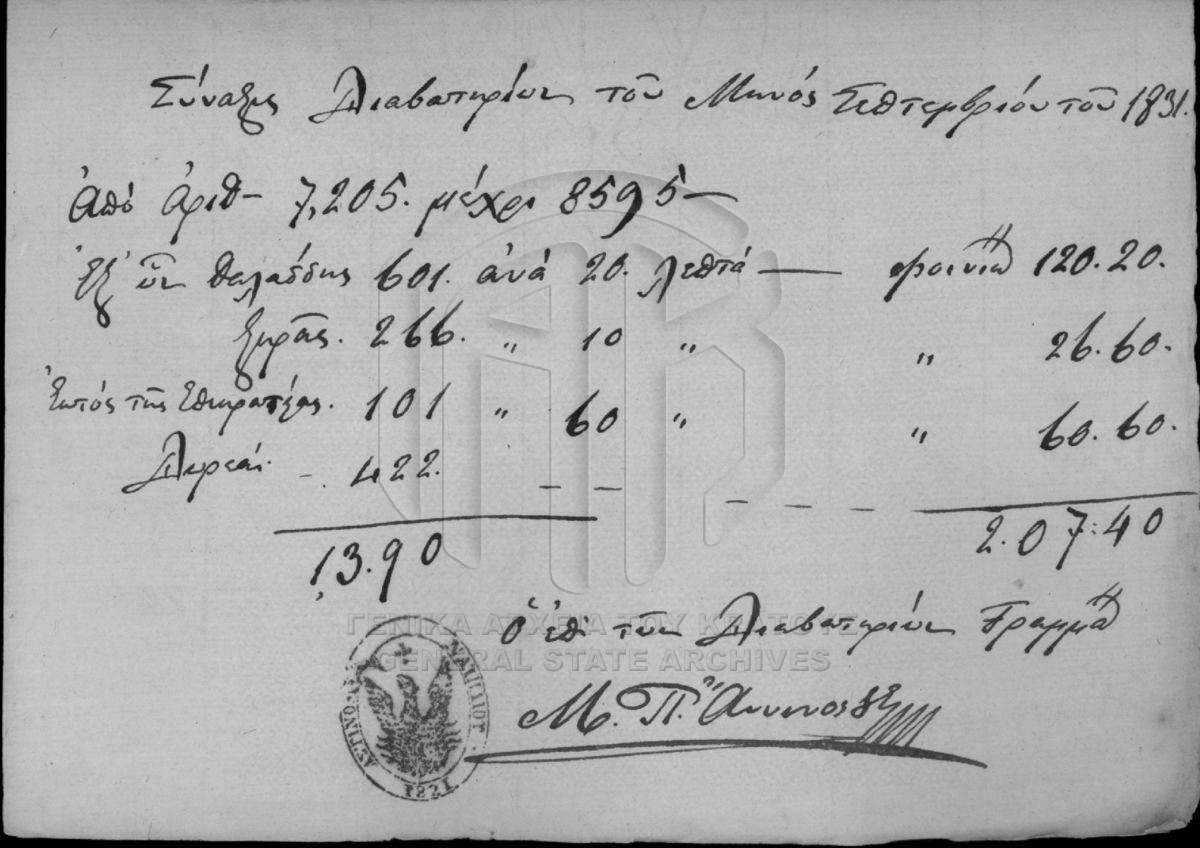 Σύναξις Διαβατηρίων τοῦ Μηνός Σεπτεμβρίου τοῦ 1831.
Ἀπό ἀριθ- 7,205. μέχρι 8595—
Ἐξ ὧν θαλάσσης 601. ἀνά 20. λεπτά — φοίνικ 120.20.
ξηρᾶς. 266. " 10 " " 26.60.
Ἐκτός τῆς Ἐπικρατείας. 101 " 60 " " 60.60.
Δωρεάν - 422. — — — — — —
1,3.90 2.07:40
Ὁ ἐπί τῶν Διαβατηρίων Γραμμ
Μ. Π.
ΓΕΝΙΚΑ ΑΡΧΕΙΑ ΤΟΥ ΚΡΑΤΟΥΣ
GENERAL STATE ARCHIVES
ΝΑΥΠΛΙΟΥ
1821